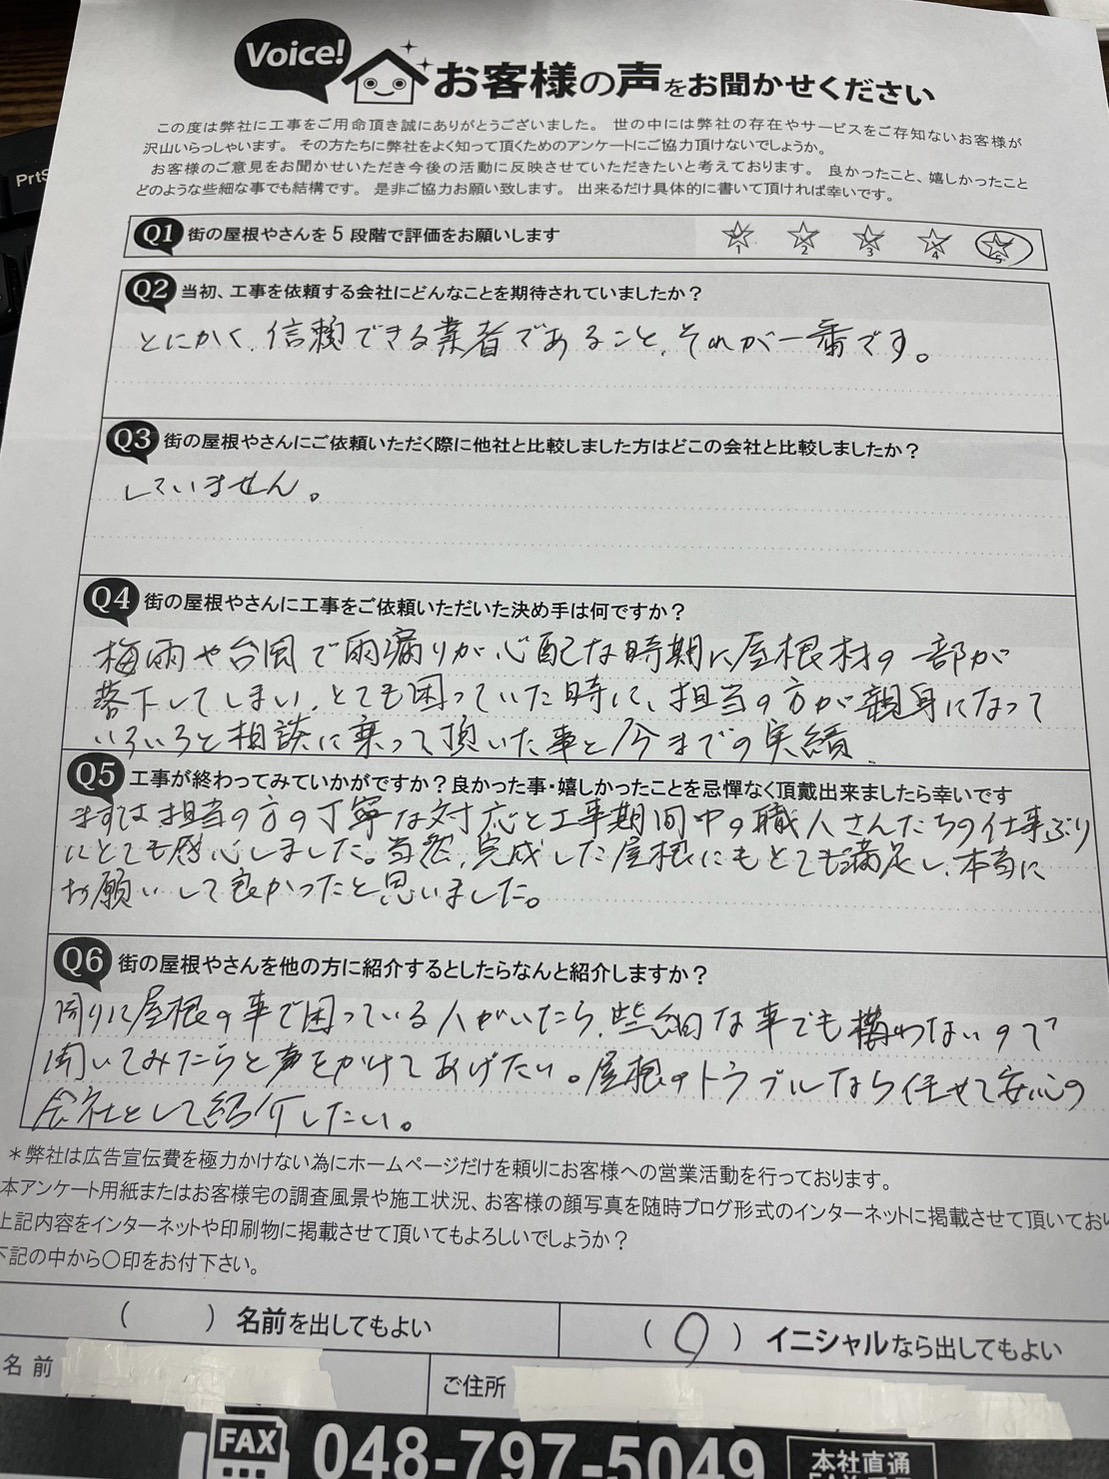 PrtS
Voice!
お客様の声をお聞かせください
この度は弊社に工事をご用命頂き誠にありがとうございました。 世の中には弊社の存在やサービスをご存知ないお客様が
沢山いらっしゃいます。 その方たちに弊社をよく知って頂くためのアンケートにご協力頂けないでしょうか。
お客様のご意見をお聞かせいただき今後の活動に反映させていただきたいと考えております。 良かったこと、嬉しかったこと
どのような些細な事でも結構です。 是非ご協力お願い致します。 出来るだけ具体的に書いて頂ければ幸いです。
Q1 街の屋根やさんを5段階で評価をお願いします
1 2 3 4 5
Q2 当初、工事を依頼する会社にどんなことを期待されていましたか？
とにかく、信頼できる業者であること、それが一番です。
Q3 街の屋根やさんにご依頼いただく際に他社と比較しました方はどこの会社と比較しましたか？
していません。
Q4 街の屋根やさんに工事をご依頼いただいた決め手は何ですか？
梅雨や台風で雨漏りが心配な時期に屋根材の一部が
落下してしまい、とても困っていた時に、担当の方が親身になって
いろいろと相談に乗って頂いた事と今までの実績。
Q5 工事が終わってみていかがですか？良かった事・嬉しかったことを忌憚なく頂戴出来ましたら幸いです
まずは担当の方の丁寧な対応と工事期間中の職人さんたちの仕事ぶり
にとても感心しました。当然、完成した屋根にもとても満足し、本当に
お願いして良かったと思いました。
Q6 街の屋根やさんを他の方に紹介するとしたらなんと紹介しますか？
周りに屋根の事で困っている人がいたら、些細な事でも構わないので
聞いてみたらと声をかけてあげたい。屋根のトラブルなら任せて安心の
会社として紹介したい。
＊弊社は広告宣伝費を極力かけない為にホームページだけを頼りにお客様への営業活動を行っております。
本アンケート用紙またはお客様宅の調査風景や施工状況、お客様の顔写真を随時ブログ形式のインターネットに掲載させて頂いてお
上記内容をインターネットや印刷物に掲載させて頂いてもよろしいでしょうか？
下記の中から〇印をお付下さい。
（　　） 名前を出してもよい
（○） イニシャルなら出してもよい
名前
ご住所
FAX 048-797-5049 本社直通